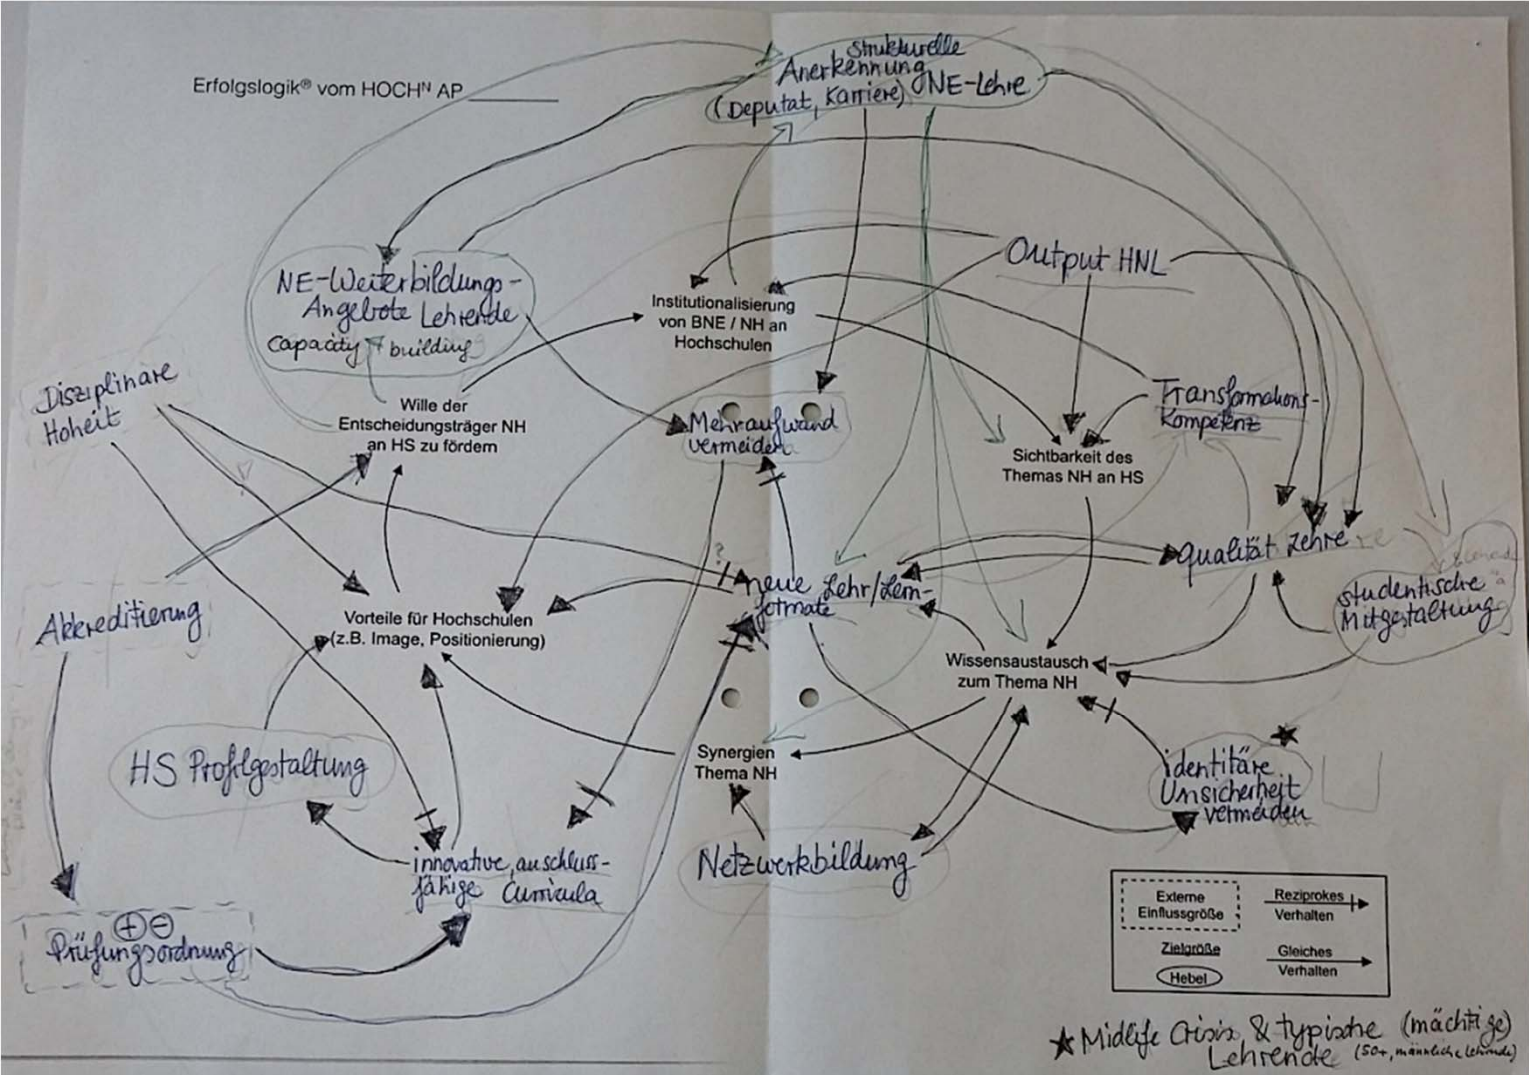 Erfolgslogik® vom HOCHᴺ AP
strukturelle
Anerkennung
NE-Lehre
(Deputat, Karriere)
NE-Weiterbildungs-
Angebote Lehrende
capacity building
Output HNL
Institutionalisierung
von BNE / NH an
Hochschulen
Disziplinäre
Hoheit
Wille der
Entscheidungsträger NH
an HS zu fördern
Mehraufwand
vermeiden
Transformations-
Kompetenz
Sichtbarkeit des
Themas NH an HS
?
Qualität Lehre
neue Lehr/Lern-
formate
studentische
Mitgestaltung
Akkreditierung
Vorteile für Hochschulen
(z.B. Image, Positionierung)
Wissensaustausch
zum Thema NH
HS Profilgestaltung
Synergien
Thema NH
★
identitäre
Unsicherheit
vermeiden
innovative, anschluss-
fähige Curricula
Netzwerkbildung
⊕ ⊖
Prüfungsordnung
Externe
Einflussgröße
Reziprokes
Verhalten
Zielgröße
Hebel
Gleiches
Verhalten
★ Midlife Crisis & typische (mächtige)
Lehrende (50+, männliche Lehrende)